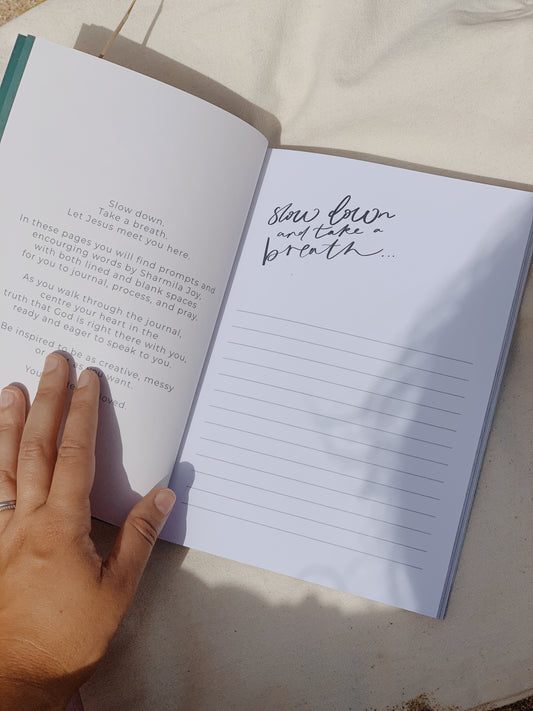 Slow down.
Take a breath.
Let Jesus meet you here.
In these pages you will find prompts and
encourging words by Sharmila Joy,
with both lined and blank spaces
for you to journal, process, and pray.
As you walk through the journal,
centre your heart in the
truth that God is right there with you,
ready and eager to speak to you.
Be inspired to be as creative, messy
or as you want.
You loved.
slow down
and take a
breath...